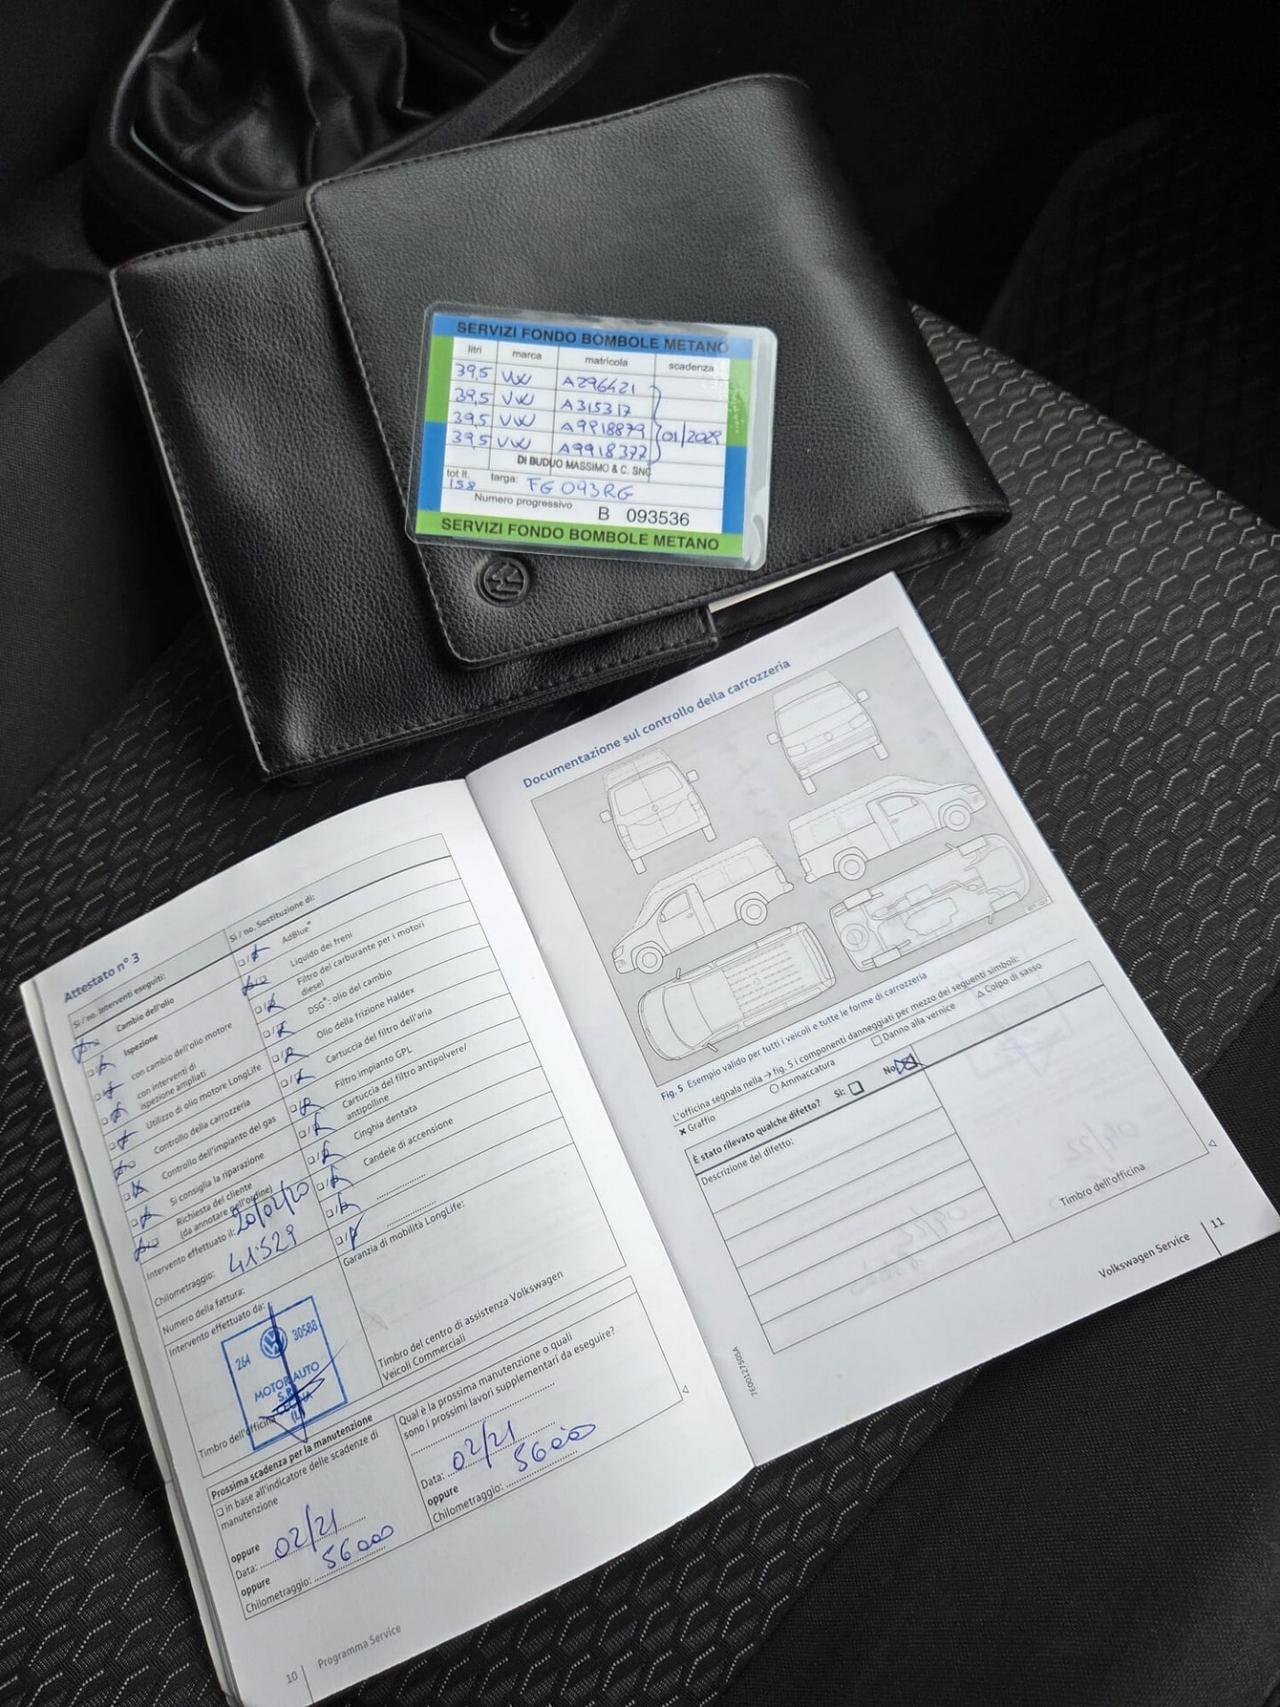 SERVIZI FONDO BOMBOLE METANO
litri marca matricola scadenza
39,5 VW A296421
39,5 VW A315317
39,5 VW A9918879 01/2029
39,5 VW A9918377
DI BUDUO MASSIMO & C. SNC
tot lt. 158 targa: FG 093RG
Numero progressivo B 093536
SERVIZI FONDO BOMBOLE METANO
Attestato n° 3
Si / no. Interventi eseguiti:
Cambio dell'olio
Ispezione
con cambio dell'olio motore
con interventi di
ispezione ampliati
Utilizzo di olio motore LongLife
Controllo della carrozzeria
Controllo dell'impianto del gas
Si consiglia la riparazione
Richiesta del cliente
(da annotare nell'ordine)
Intervento effettuato il: 20/02/20
Chilometraggio: 41529
Numero della fattura:
Intervento effettuato da:
264 30588
MOTOR AUTO
Timbro dell'officina
Si / no. Sostituzione di:
AdBlue®
Liquido dei freni
Filtro del carburante per i motori
diesel
DSG®: olio del cambio
Olio della frizione Haldex
Cartuccia del filtro dell'aria
Filtro impianto GPL
Cartuccia del filtro antipolvere/
antipolline
Cinghia dentata
Candele di accensione
Garanzia di mobilità LongLife:
Timbro del centro di assistenza Volkswagen
Veicoli Commerciali
Prossima scadenza per la manutenzione
in base all'indicatore delle scadenze di
manutenzione
oppure
Data: 02/21
oppure
Chilometraggio: 56000
Qual è la prossima manutenzione o quali
sono i prossimi lavori supplementari da eseguire?
Data: 02/21
oppure
Chilometraggio: 56000
10 | Programma Service
Documentazione sul controllo della carrozzeria
Fig. 5 Esempio valido per tutti i veicoli e tutte le forme di carrozzeria
L'officina segnala nella → fig. 5 i componenti danneggiati per mezzo dei seguenti simboli:
× Graffio ○ Ammaccatura □ Danno alla vernice △ Colpo di sasso
È stato rilevato qualche difetto? Sì: No:
Descrizione del difetto:
Timbro dell'officina
7E0012750SA
Volkswagen Service | 11